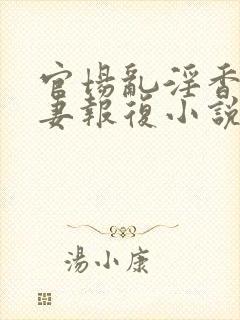 官場亂淫香
妻報復小說
湯小康